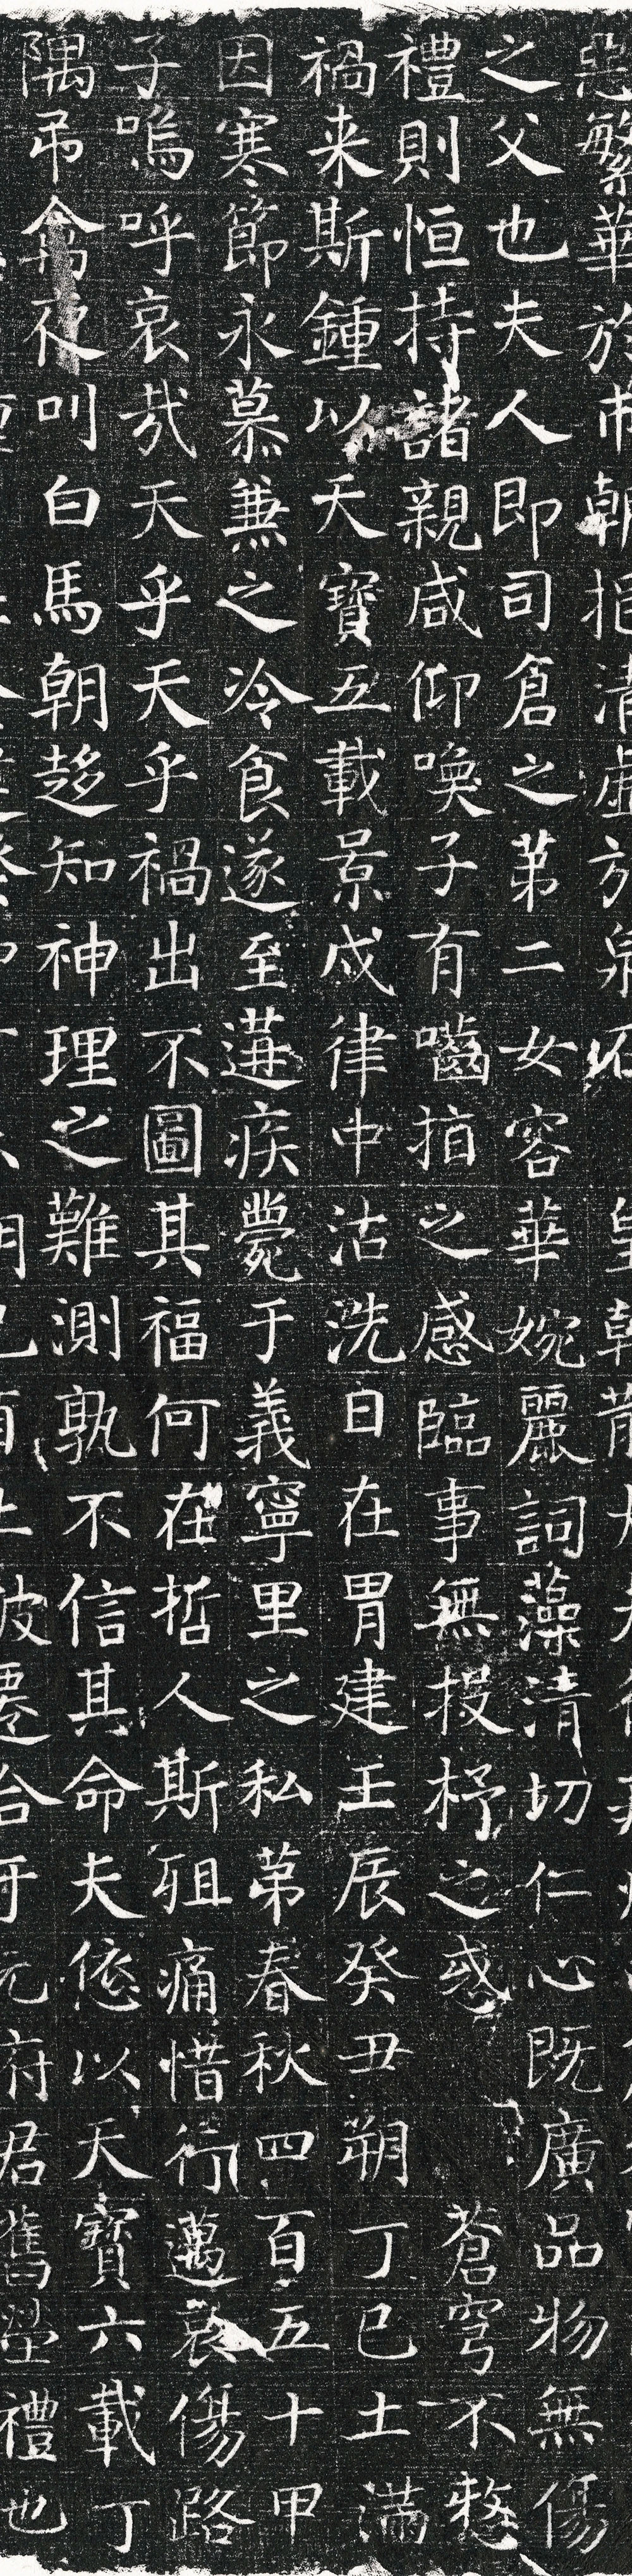 繁華於市朝挹清虛於泉石
之父也夫人即司倉之苐二女容華婉麗詞藻清切仁心既廣品物無傷
禮則恒持諸親咸仰喚子有嚙指之感臨事無投杼之惑蒼穹不憖
禍来斯鍾以天寶五載景戍律中沽洗日在胃建壬辰癸丑朔丁巳土滿
因寒節永慕兼之冷食遂至遘疾薨于義寧里之私苐春秋四百五十甲
子嗚呼哀哉天乎天乎禍出不圖其福何在哲人斯殂痛惜行邁哀傷路
隅吊禽夜叫白馬朝趍知神理之難測孰不信其命夫以天寶六載丁
府君舊塋禮也